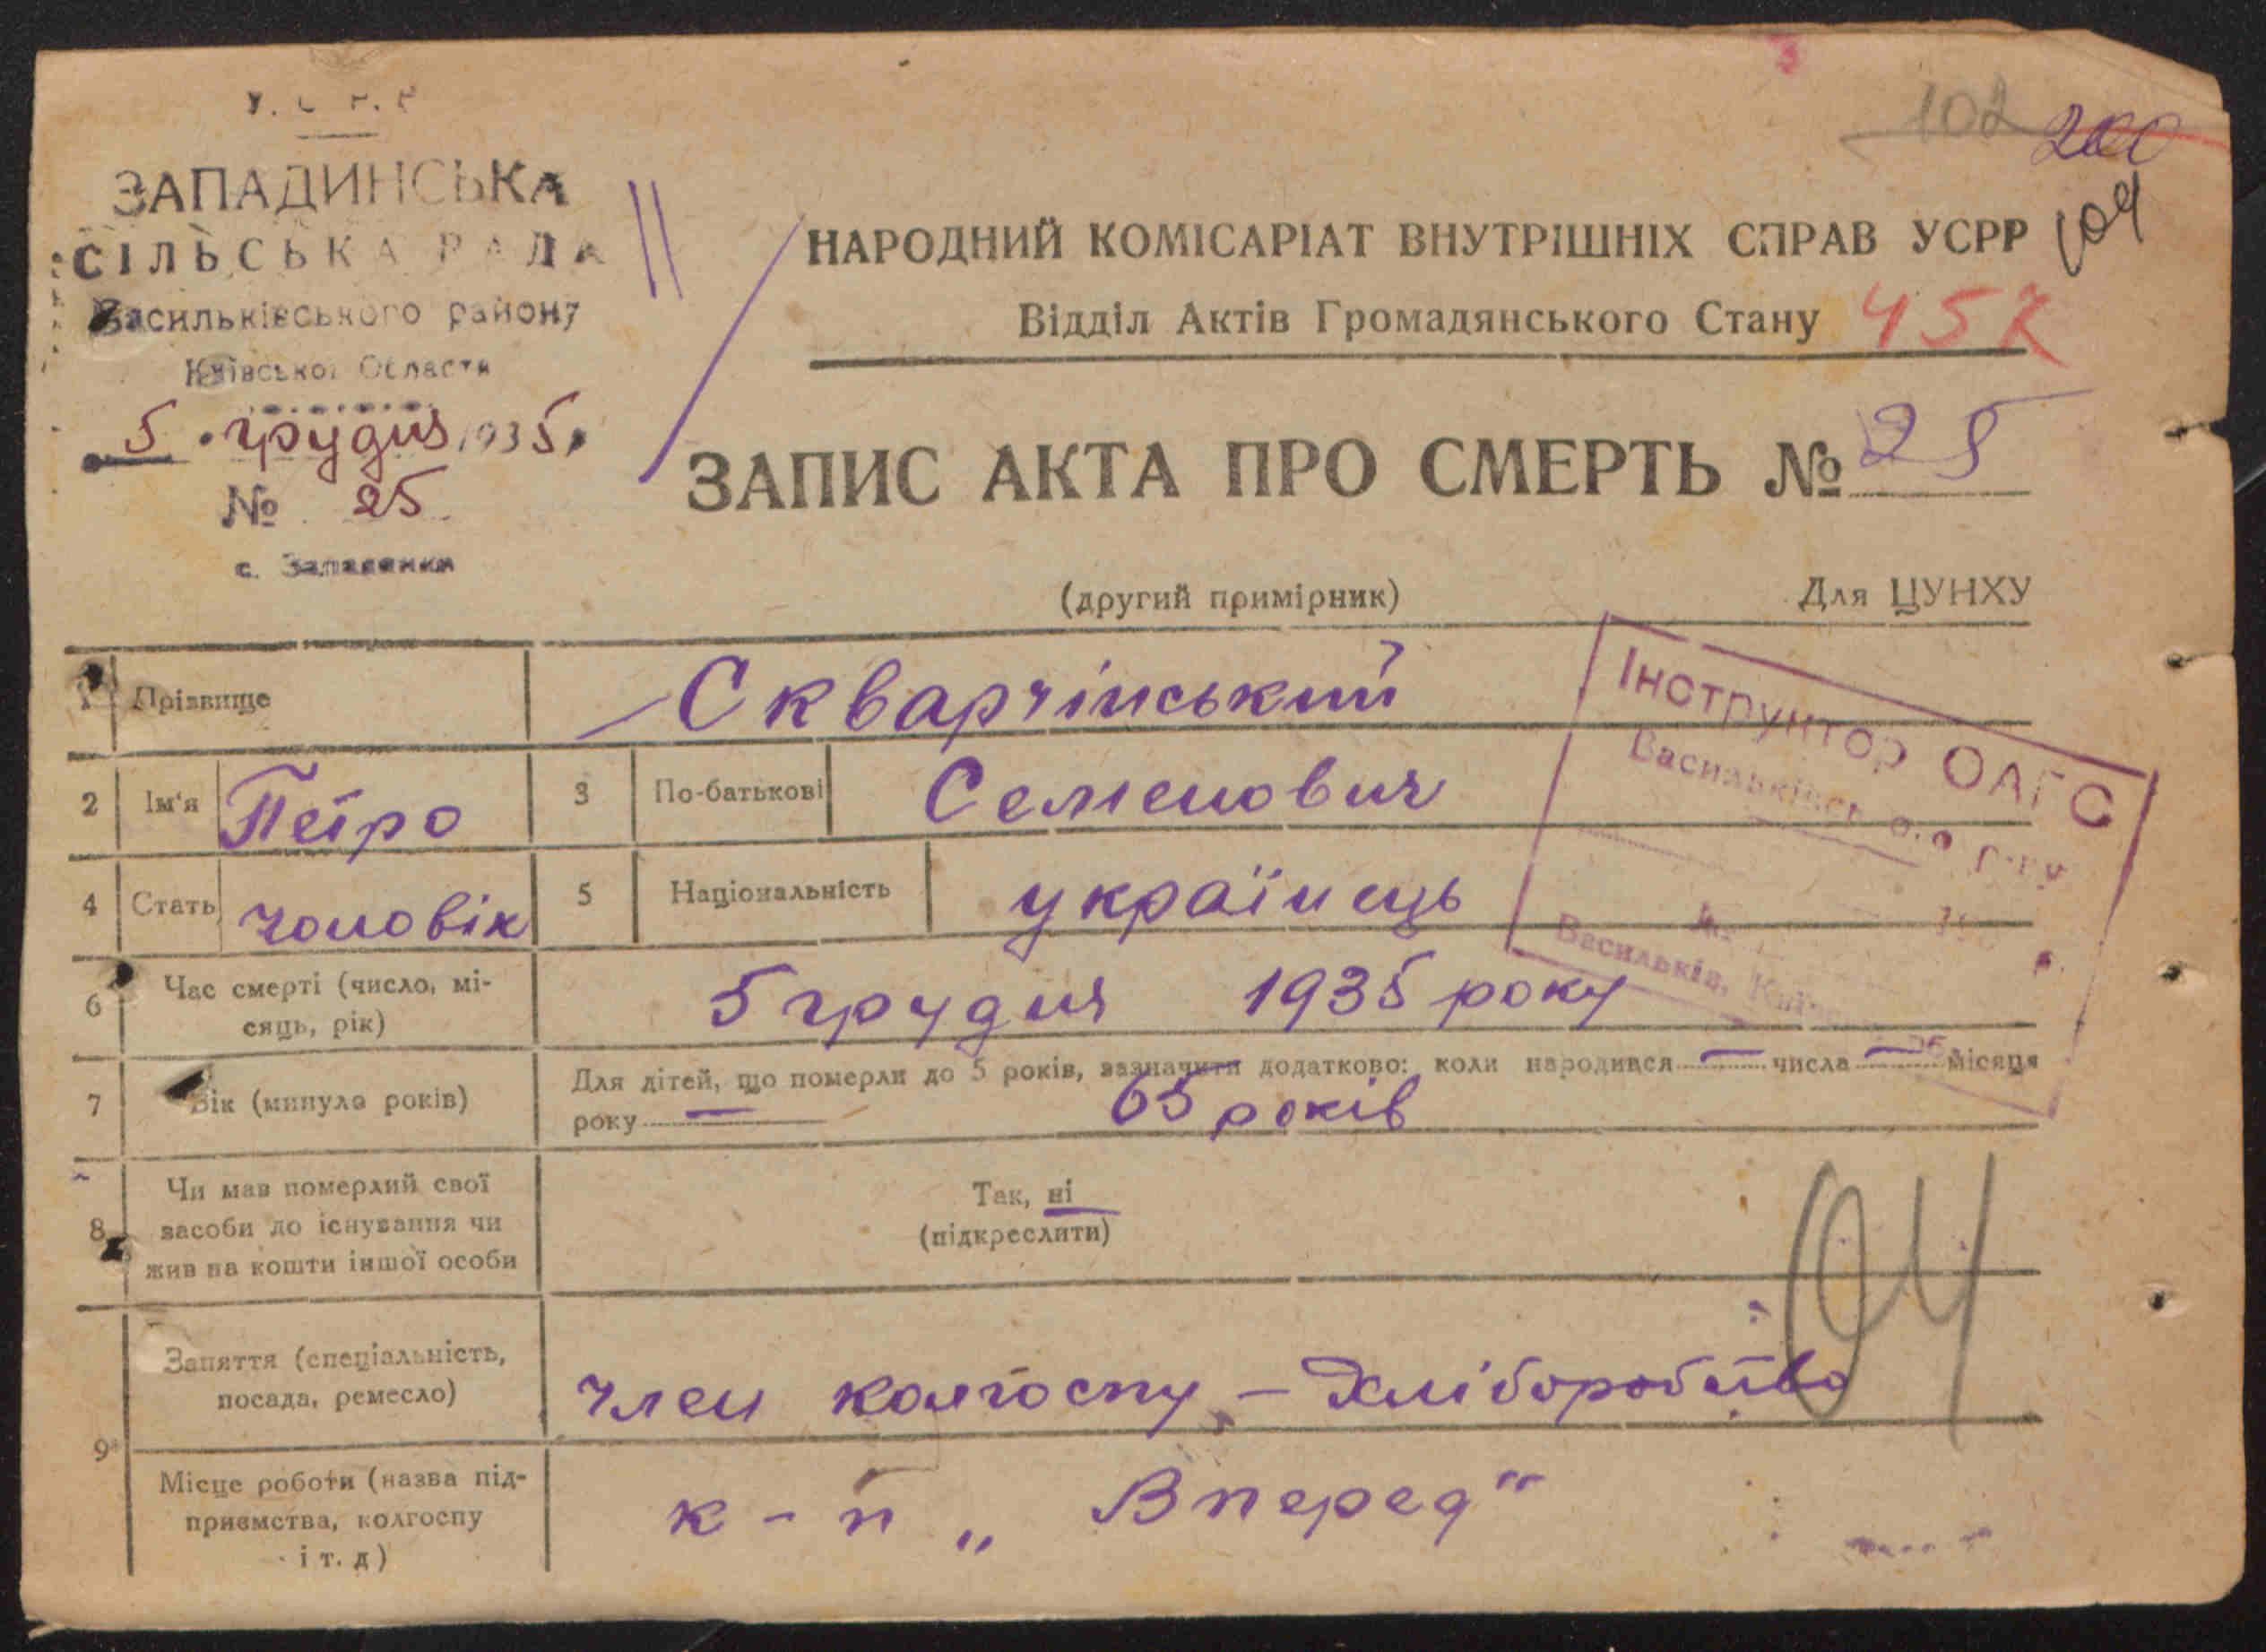 У. С. Р. Р.
ЗАПАДИНСЬКА
СІЛЬСЬКА РАДА
Васильківського району
Київської Области
5 грудня 1935
№ 25
с. Западенка
102 200
104
НАРОДНИЙ КОМІСАРІАТ ВНУТРІШНІХ СПРАВ УСРР
Відділ Актів Громадянського Стану
ЗАПИС АКТА ПРО СМЕРТЬ № 25
(другий примірник) Для ЦУНХУ
Інструктор ОАГС
Васильків,
1 Прізвище Скварчінський
2 Ім'я Петро 3 По-батькові Семенович
4 Стать чоловік 5 Національність українець
6 Час смерті (число, мі-
сяць, рік) 5 грудня 1935 року
7 Вік (минуло років) Для дітей, що померли до 5 років, зазначити додатково: коли народився — числа — місяця
року — 65 років
8 Чи мав померлий свої
засоби до існування чи
жив на кошти іншої особи
Так, ні
(підкреслити)
104
9 Заняття (спеціальність,
посада, ремесло) член колгоспу – Хліборобство
Місце роботи (назва під-
приємства, колгоспу
і т. д) к-п „Вперед"